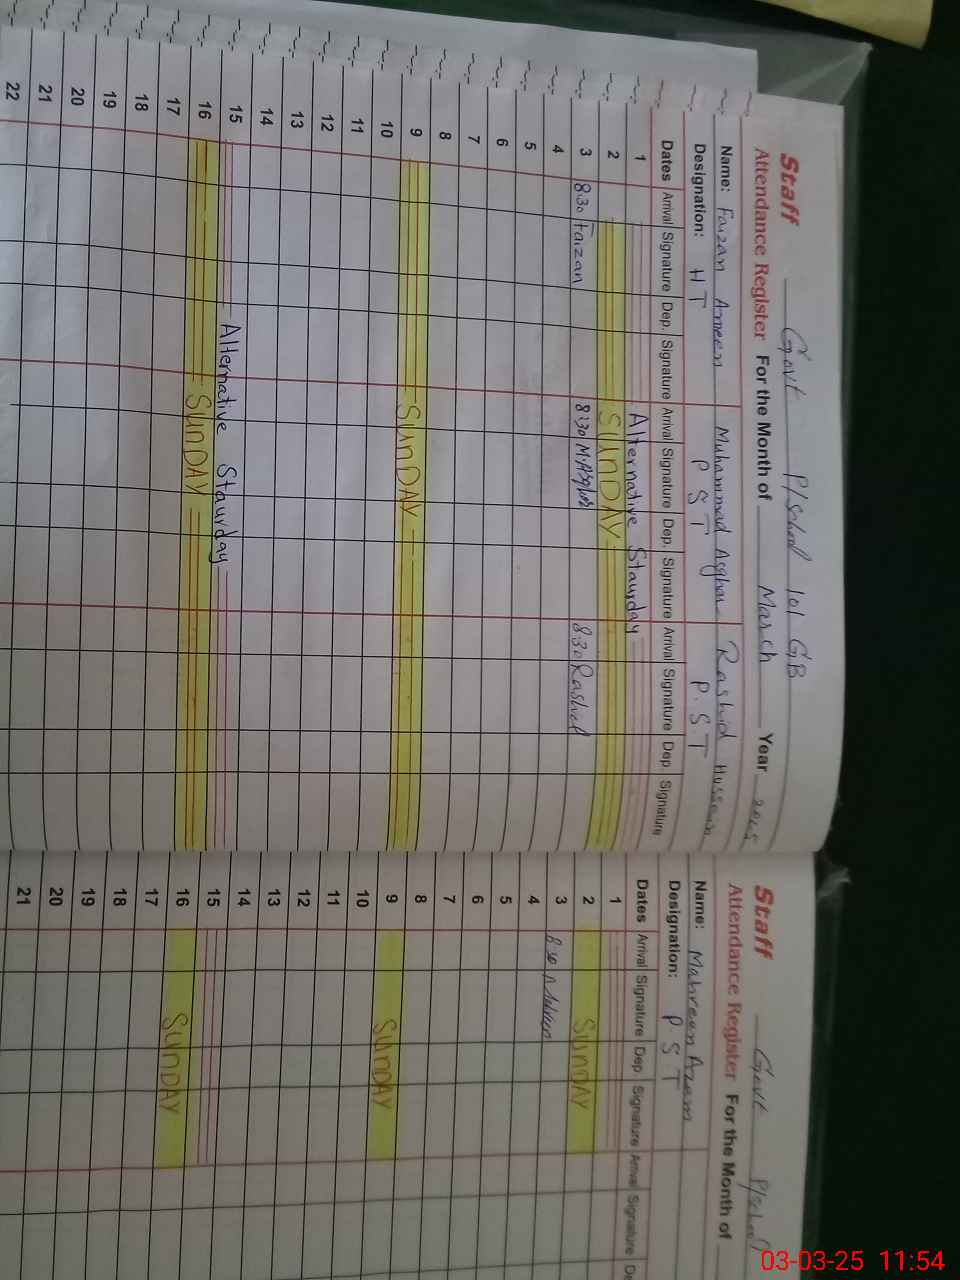 Staff Govt P/School 101 GB
Attendance Register For the Month of March Year 2025
Name: Faizan Ameen Muhammad Asghar Rashid Hussain
Designation: H T P S T P.S.T
Dates Arrival Signature Dep. Signature Arrival Signature Dep. Signature Arrival Signature Dep Signature
1 Alternative Staurday
2 SUNDAY
3 8:30 Faizan 8:30 M.Asghar 8:30 Rashid
4
5
6
7
8
9 SUNDAY
10
11
12
13
14
15 Alternative Staurday
16 SUNDAY
17
18
19
20
21
22
Staff Govt P/School
Attendance Register For the Month of
Name: Mahreen Azam
Designation: P S T
Dates Arrival Signature Dep Signature Arrival Signature De
1
2 SUNDAY
3 8:30 Mahreen
4
5
6
7
8
9 SUNDAY
10
11
12
13
14
15
16 SUNDAY
17
18
19
20
21
03-03-25 11:54